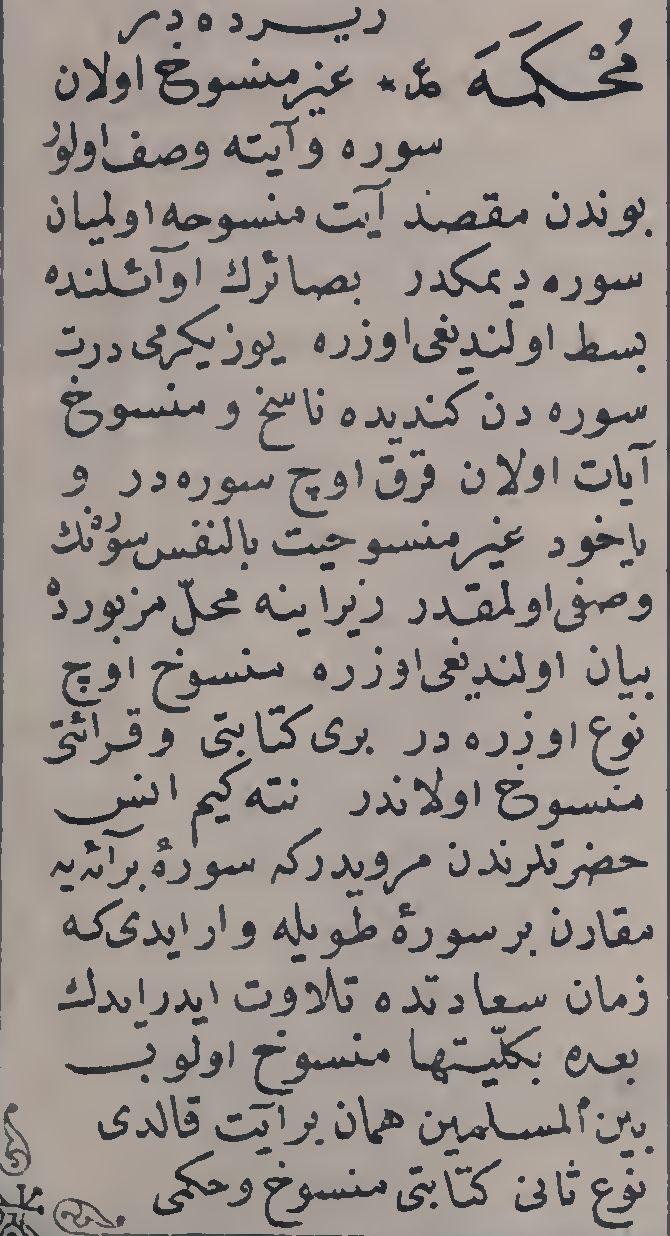 ديــرده در
مُحْكَمَهَ * ع * غير منسوخ اولان
سوره و آيته وصف اولور
بوندن مقصد آيت منسوحه اولميان
سوره ديمكدر بصائرك اوآئلنده
بسط اولنديغى اوزره يوز يكرمى درت
سوره دن كنديده ناسخ و منسوخ
آيات اولان قرق اوچ سوره در و
ياخود غير منسوحيت بالنفس سوره نك
وصفى اولمقدر زيرا ينه محلّ مزبورده
بيان اولنديغى اوزره منسوخ اوچ
نوع اوزره در برى كتابتى و قرائتى
منسوخ اولاندر نته كيم انس
حضرتلرندن مرويدركه سورۀ برآئه يه
مقارن بر سورۀ طويله وار ايدى كه
زمان سعادتده تلاوت ايدر ايدك
بعده بكلّيتها منسوخ اولوب
بين المسلمين همان بر آيت قالدى
نوع ثانى كتابتى منسوخ و حكمى